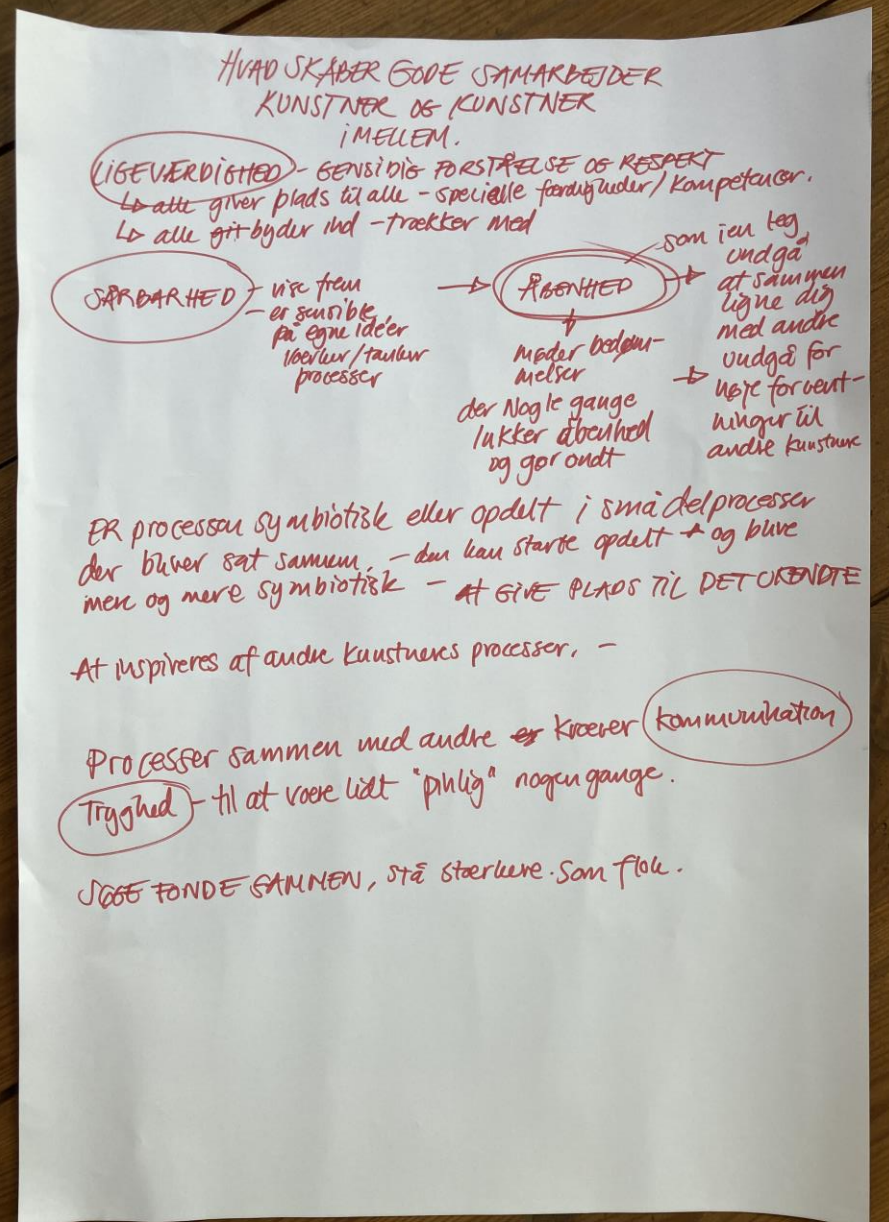 HVAD SKABER GODE SAMARBEJDER
KUNSTNER OG KUNSTNER
iMELLEM.
LIGEVÆRDIGHED - GENSIDIG FORSTÅELSE OG RESPEKT
↳ alle giver plads til alle - specielle færdigheder/kompetencer.
↳ alle git byder ind - trækker med
SÅRBARHED - vise frem
- er sensible
på egne idéer
værker/tanker
processer
→ ÅBENHED
møder bedøm-
melser
der Nogle gange
lukker åbenhed
og gør ondt
som i en leg
→ undgå
at sammen
ligne dig
med andre
→ undgå for
høje forvent-
ninger til
andre kunstnere
ER processen symbiotisk eller opdelt i små delprocesser
der bliver sat sammen. - den kan starte opdelt og blive
mere og mere symbiotisk - At GIVE PLADS TiL DET UKENDTE
At inspireres af andre kunstneres processer. -
Processer sammen med andre er kræver kommunikation
Tryghed - til at være lidt "pinlig" nogen gange.
SØGE FONDE SAMMEN, stå stærkere. Som flok.